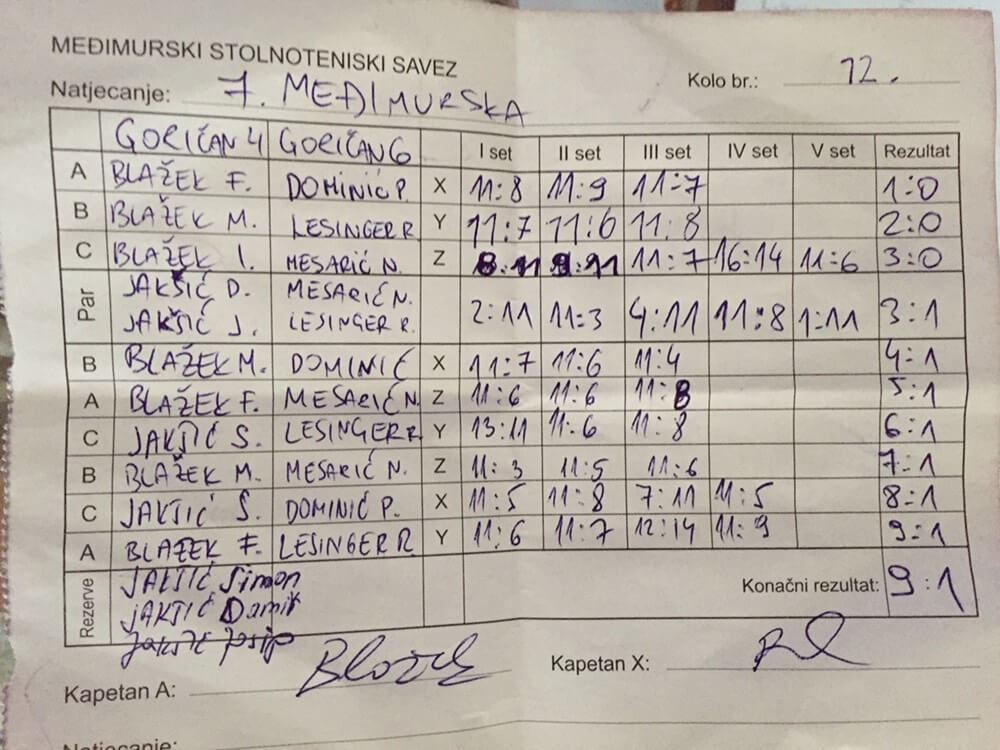 MEĐIMURSKI STOLNOTENISKI SAVEZ
Natjecanje: 7. MEĐIMURSKA Kolo br.: 12.
GORIČAN 4 GORIČAN 6 I set II set III set IV set V set Rezultat
A BLAŽEK F. DOMINIĆ P. X 11:8 11:9 11:7 1:0
B BLAŽEK M. LESINGER R. Y 11:7 11:6 11:8 2:0
C BLAŽEK I. MESARIĆ N. Z 8:11 9:11 11:7 16:14 11:6 3:0
Par JAKŠIĆ D. MESARIĆ N.
JAKŠIĆ J. LESINGER R. 2:11 11:3 4:11 11:8 1:11 3:1
B BLAŽEK M. DOMINIĆ X 11:7 11:6 11:4 4:1
A BLAŽEK F. MESARIĆ N Z 11:6 11:6 11:8 5:1
C JAKŠIĆ S. LESINGER R Y 13:11 11:6 11:8 6:1
B BLAŽEK M. MESARIĆ N. Z 11:3 11:5 11:6 7:1
C JAKŠIĆ S. DOMINIĆ P. X 11:5 11:8 7:11 11:5 8:1
A BLAŽEK F. LESINGER R Y 11:6 11:7 12:14 11:9 9:1
Rezerve JAKŠIĆ Simon
JAKŠIĆ Damir Konačni rezultat: 9:1
Jakšić Josip
Kapetan A: Blažek Kapetan X:
Natjecanje: